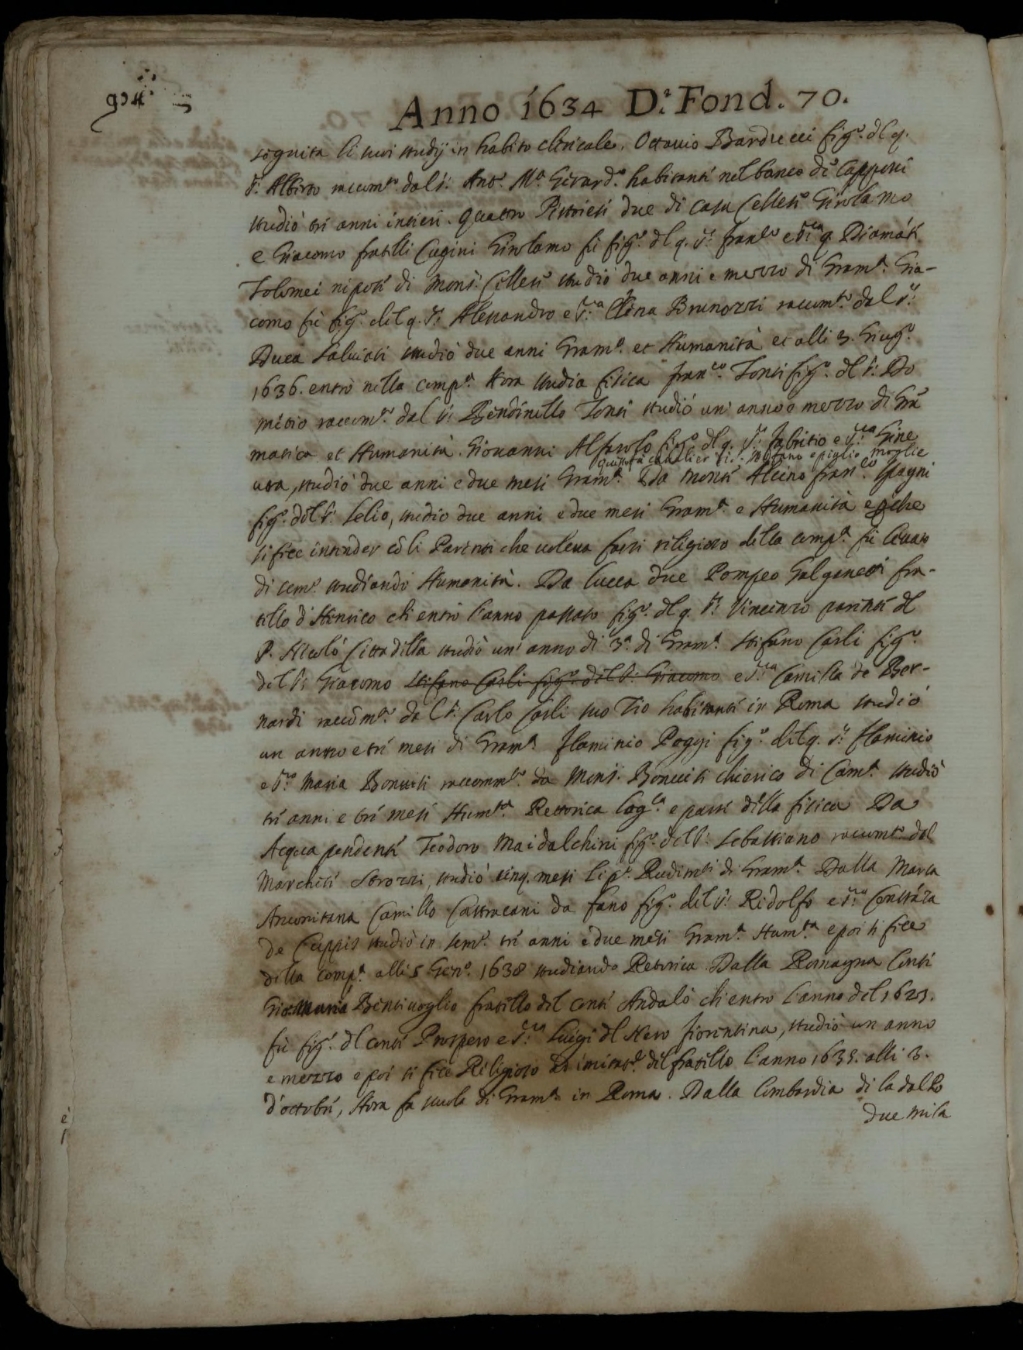 Anno 1634 D.ª Fond. 70.
seguita li suoi studij in habito clericale. Ottavio Barducci fig.º dl q.
S. Alberto racom.to dal S. Ant.º M.ª Girard.º habitante nel banco de Capponi
studiò tri anni intieri. Quattro Pistoiesi due di casa Cellesi Girolamo
e Giacomo fratelli Cugini Girolamo fù fig.º dl q. S.r Fran.co e S.ra q. Diamāti
Tolomei nipoti di Mons.r Cellesi studiò due anni e mezzo di Gram.ª Gia-
como fù fig.º del q. S.r Alessandro e S.ra Elena Brunozzi racom.to dal S.r
Duca Salviati studiò due anni Gram.ª et Humanità et alli 3 Giug.º
1636. entrò nella comp.ª hora studia fisica Fran.co Tonti fig.º dl S. Do
mitio raccom.to dal S. Bendinello Tonti studiò un' anno e mezzo di Grā
matica et Humanità. Giovanni fig.º dl q. S.r Fabritio e S.ra Gine
vra, studiò due anni e due mesi Gram.ª Da Monte Alcino Fran.co Spagni
questo è cavalier di S. Stefano e pigliò moglie
fig.º del S. Lelio, studiò due anni e due mesi Gram.ª e Humanità e perche
si fece intender cō li Parenti che voleva farsi religioso della comp.ª fù levato
di sem.º studiando Humanità. Da Lucca due Pompeo Galganetti fra-
tello d'Henrico ch entrò l'anno passato fig.º dl q. S. Vincenzo parente dl
P. Nicolò Cittadella studiò un' anno di 3.ª di Gram.ª Stefano Carli fig.º
del S. Giacomo Stefano Carli fig.º del S. Giacomo e S.ra Camilla de Ber-
nardi raccōm.to da l S. Carlo Carli suo Zio habitante in Roma studiò
un anno e tri mesi di Gram.ª Flaminio Poggi fig.º del q. S. Flaminio
e S.ra Maria Bonvisi raccomm.to da Mons. Bonvisi chierico di Cam.ª studiò
tri anni e tri mesi Hum.tà Rettorica Log.ca e parte della fisica Da
Acqua pendente Teodoro Maidalchini fig.º del S. Sebastiano racom.to dal
Marchese Strozzi, studiò cinq. mesi li p.i Rudim.ti di Gram.ª Dalla Marca
Anconitana Camillo Castracani da Fano fig.º del S. Ridolfo e S.ra Constāza
de Cuppis studiò in sem.º tri anni e due mesi Gram.ª Hum.tà e poi si fece
della Comp.ª alli 5 Gen.º 1638 studiando Retorica Dalla Romagna Conte
Gio: Maria Bentivoglio fratello del conte Andalò ch entrò l'anno del 1629.
fù fig.º dl conte Prospero e S.ra Luigi dl Nero fiorentina, studiò un anno
e mezzo e poi si fece Religioso ad imitat.e del fratello l'anno 1635. alli 3.
d'ottobre, hora fa scuola di Gram.ª in Roma. Dalla Lombardia di la dal Po
due Mila